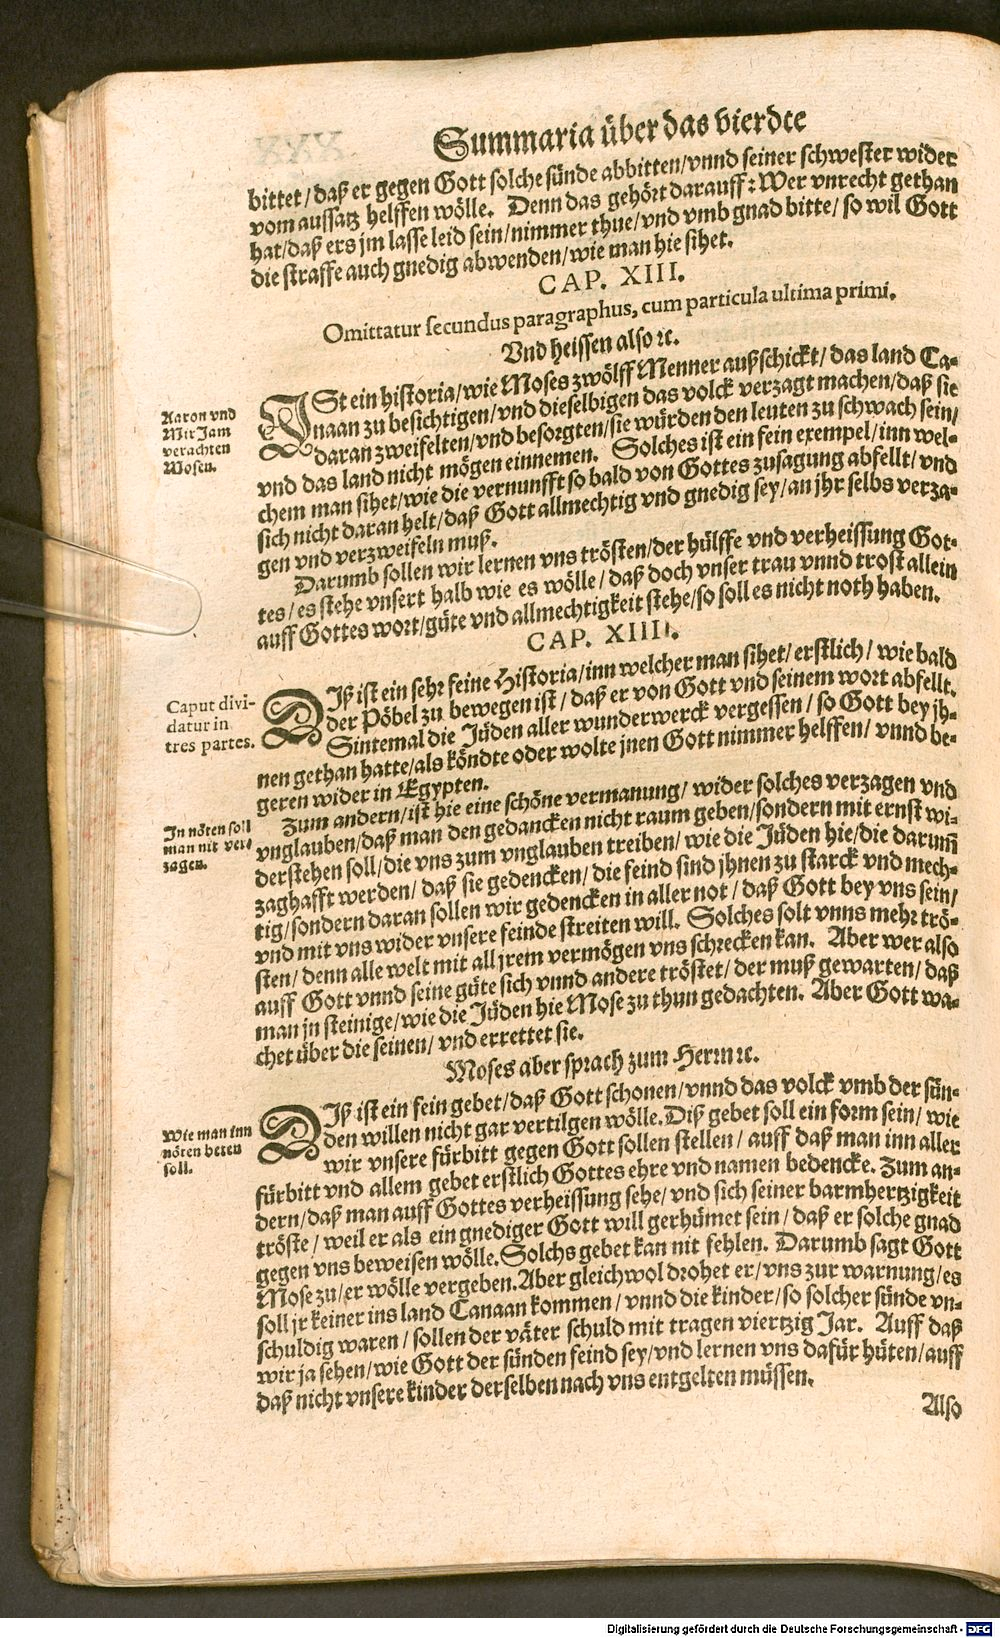 Summaria über das vierdte
bittet / daß er gegen Gott solche sünde abbitten / vnnd seiner schwester wider
vom aussatz helffen wölle. Denn das gehört darauff: Wer vnrecht gethan
hat / daß ers jm lasse leid sein / nimmer thue / vnd vmb gnad bitte / so wil Gott
die straffe auch gnedig abwenden / wie man hie sihet.
CAP. XIII.
Omittatur secundus paragraphus, cum particula ultima primi.
Vnd heissen also ꝛc.
Aaron vnd
MirJam
verachten
Mosen.
ISt ein historia / wie Moses zwölff Menner außschickt / das land Ca-
naan zu besichtigen / vnd dieselbigen das volck verzagt machen / daß sie
daran zweifelten / vnd besorgten / sie würden den leuten zu schwach sein /
vnd das land nicht mögen einnemen. Solches ist ein fein exempel / inn wel-
chem man sihet / wie die vernunfft so bald von Gottes zusagung abfellt / vnd
sich nicht daran helt / daß Gott allmechtig vnd gnedig sey / an jhr selbs verza-
gen vnd verzweifeln muß.
Darumb sollen wir lernen vns trösten / der hülffe vnd verheissung Got-
tes / es stehe vnsert halb wie es wölle / daß doch vnser trau vnnd trost allein
auff Gottes wort / güte vnd allmechtigkeit stehe / so soll es nicht noth haben.
CAP. XIIII.
Caput divi-
datur in
tres partes.
DIß ist ein sehr feine Historia / inn welcher man sihet / erstlich / wie bald
der Pöbel zu bewegen ist / daß er von Gott vnd seinem wort abfellt.
Sintemal die Jüden aller wunderwerck vergessen / so Gott bey jh-
nen gethan hatte / als köndte oder wolte jnen Gott nimmer helffen / vnnd be-
geren wider in Egypten.
In nöten soll
man nit ver-
zagen.
Zum andern / ist hie eine schöne vermanung / wider solches verzagen vnd
vnglauben / daß man den gedancken nicht raum geben / sondern mit ernst wi-
derstehen soll / die vns zum vnglauben treiben / wie die Jüden hie / die darum̃
zaghafft werden / daß sie gedencken / die feind sind jhnen zu starck vnd mech-
tig / sondern daran sollen wir gedencken in aller not / daß Gott bey vns sein /
vnd mit vns wider vnsere feinde streiten will. Solches solt vnns mehr trö-
sten / denn alle welt mit all jrem vermögen vns schrecken kan. Aber wer also
auff Gott vnnd seine güte sich vnnd andere tröstet / der muß gewarten / daß
man jn steinige / wie die Jüden hie Mose zu thun gedachten. Aber Gott wa-
chet über die seinen / vnd errettet sie.
Moses aber sprach zum Herrn ꝛc.
Wie man inn
nöten beten
soll.
DIß ist ein fein gebet / daß Gott schonen / vnnd das volck vmb der sün-
den willen nicht gar vertilgen wölle. Diß gebet soll ein form sein / wie
wir vnsere fürbitt gegen Gott sollen stellen / auff daß man inn aller
fürbitt vnd allem gebet erstlich Gottes ehre vnd namen bedencke. Zum an-
dern / daß man auff Gottes verheissung sehe / vnd sich seiner barmhertzigkeit
tröste / weil er als ein gnediger Gott will gerhümet sein / daß er solche gnad
gegen vns beweisen wölle. Solchs gebet kan nit fehlen. Darumb sagt Gott
Mose zu / er wölle vergeben. Aber gleichwol drohet er / vns zur warnung / es
soll jr keiner ins land Canaan kommen / vnnd die kinder / so solcher sünde vn-
schuldig waren / sollen der väter schuld mit tragen viertzig Jar. Auff daß
wir ja sehen / wie Gott der sünden feind sey / vnd lernen vns dafür hüten / auff
daß nicht vnsere kinder derselben nach vns entgelten müssen.
Also
Digitalisierung gefördert durch die Deutsche Forschungsgemeinschaft - DFG